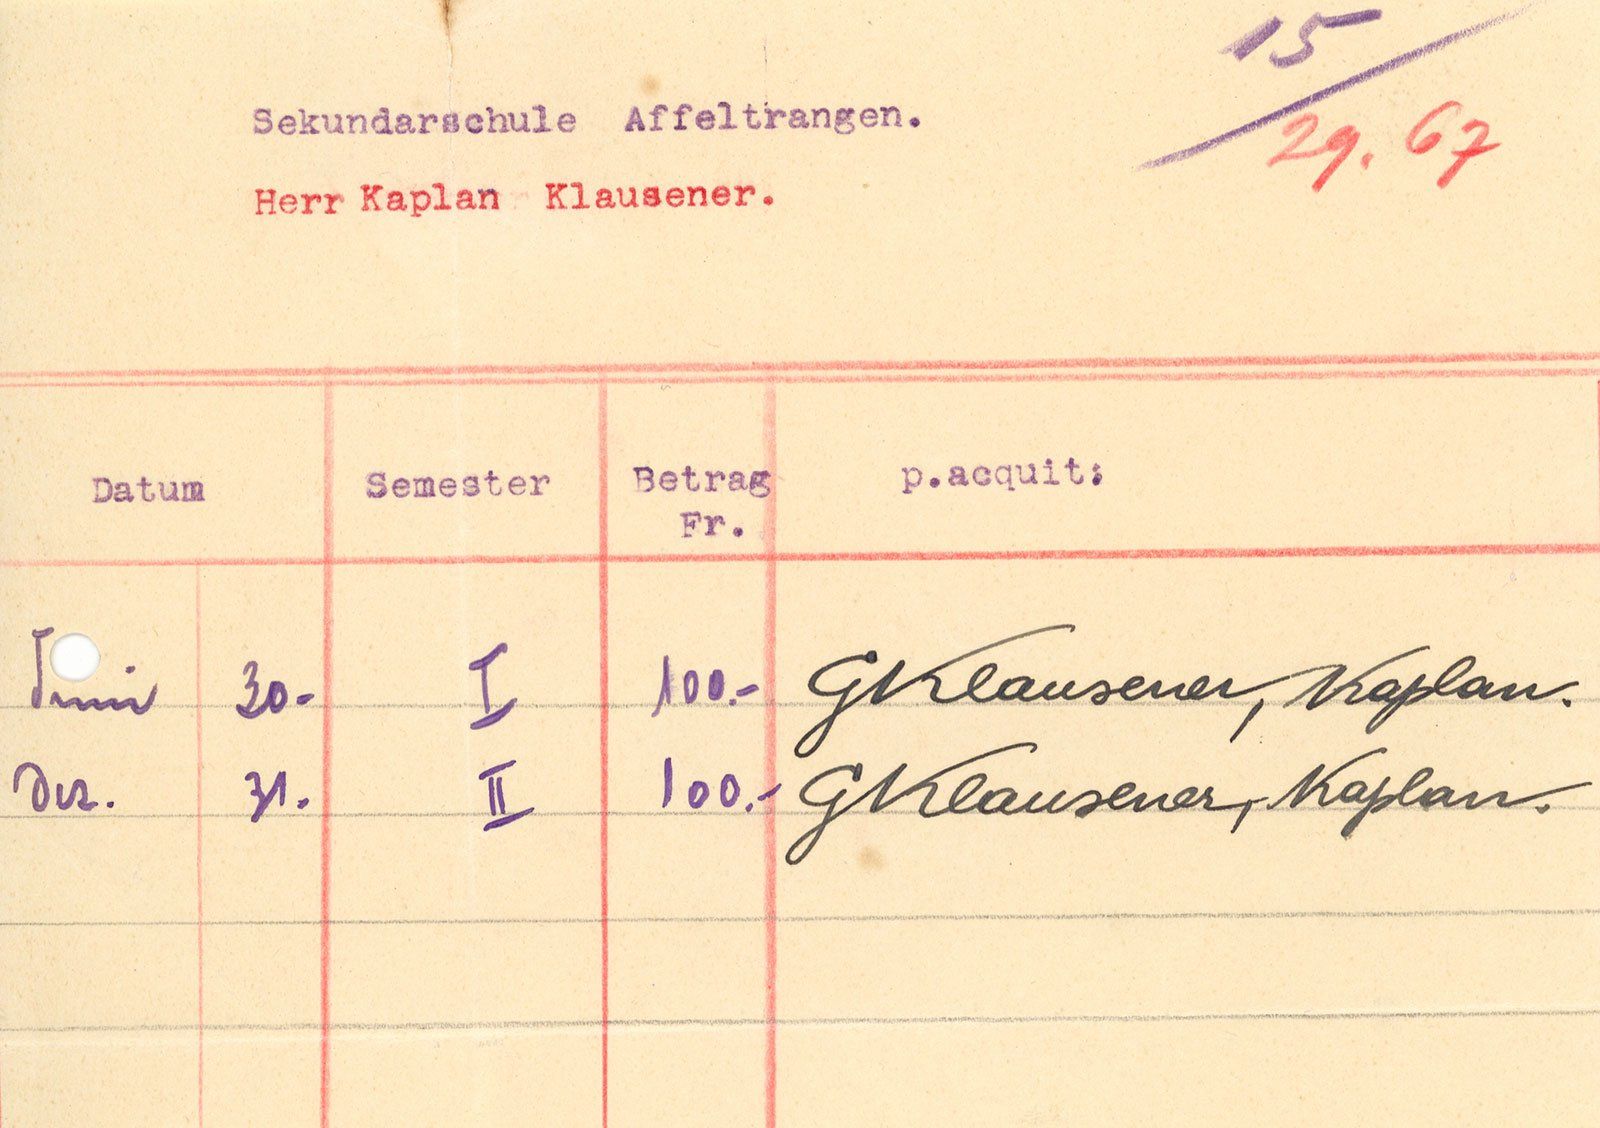 15
29. 67
Sekundarschule Affeltrangen.
Herr Kaplan Klausener.
Datum Semester Betrag p.acquit:
Fr.
Juni 30.- I 100.- GKlausener, Kaplan.
Dez. 31. II 100.- GKlausener, Kaplan.